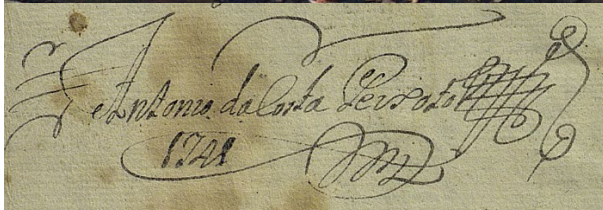 Antonio da Costa Peixoto
1741